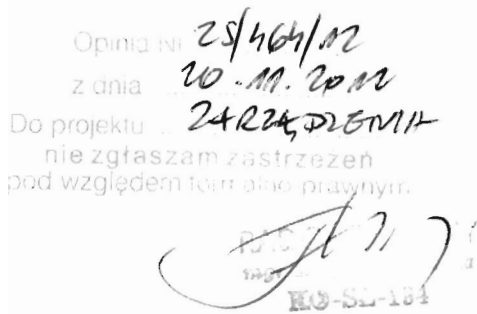 Opinia Nr 25/464/12
z dnia 20.11.2012
Do projektu ZARZĄDZENIA
nie zgłaszam zastrzeżeń
pod względem formalno-prawnym
RAD